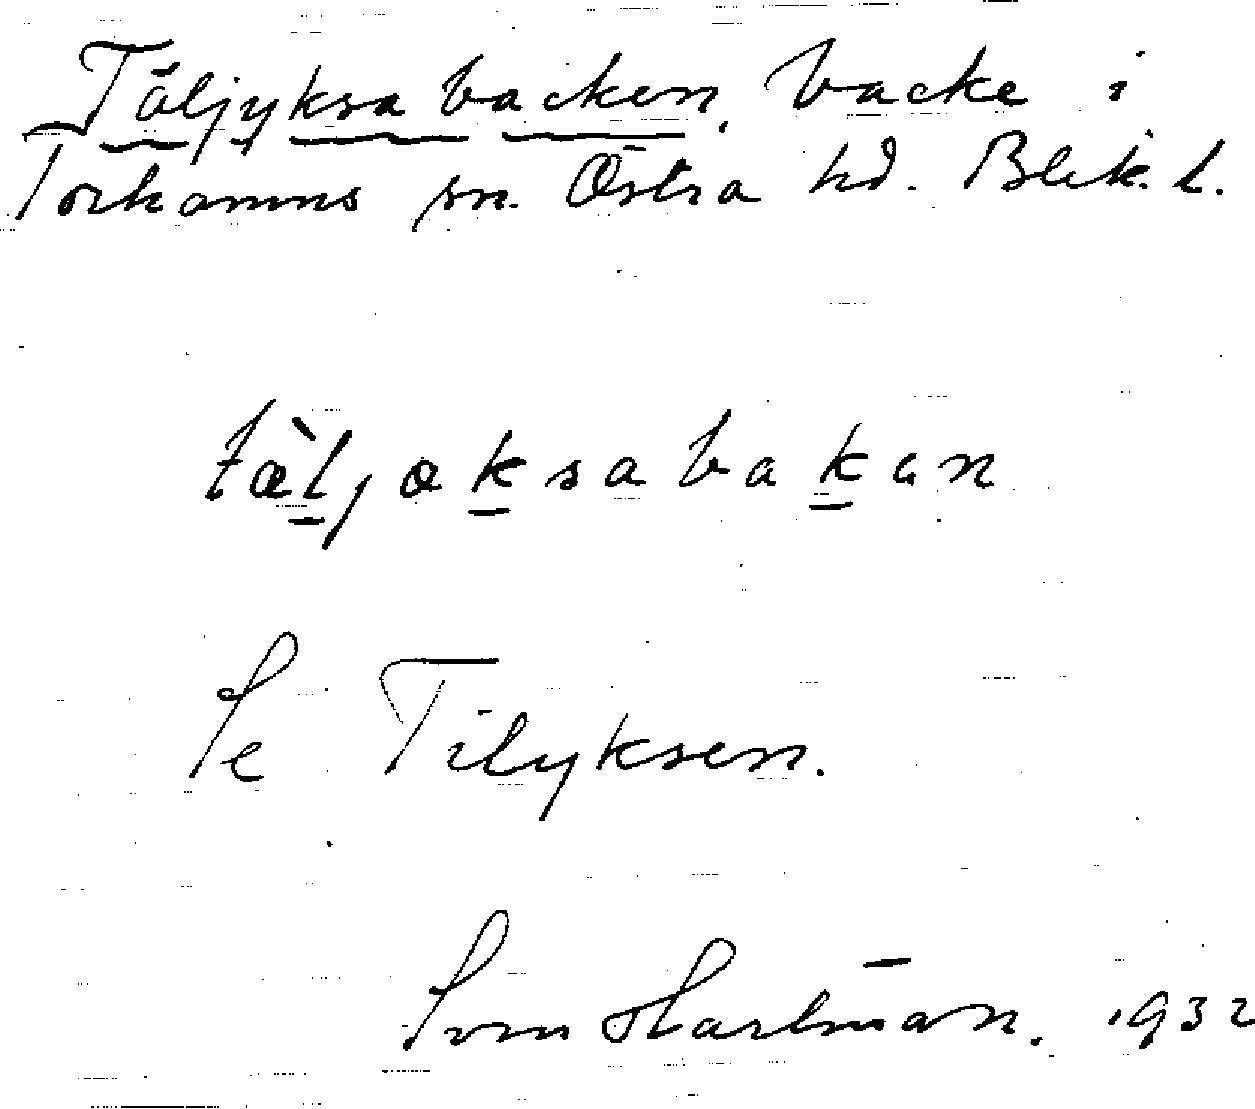 Täljyksabacken, backe i
Torhamns sn. Östra hd. Blek. l.
tæ̀ljøksabakan
Se Tilyksen.
Sven Hartman. 1932